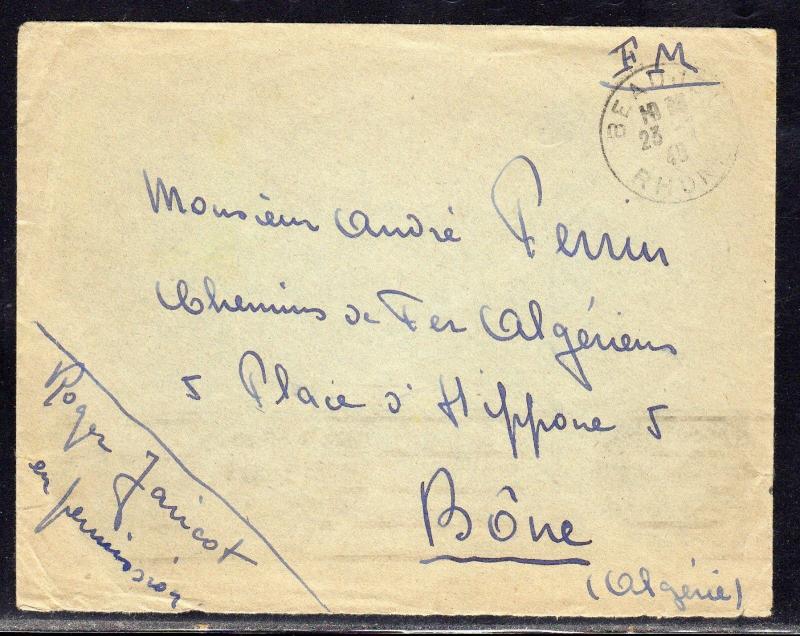 F.M
BEAUJEU
RHONE
Monsieur André Perrin
Chemins de Fer Algériens
5 Place d'Hippone 5
Bône
(Algérie)
Roger Janicot
en permission